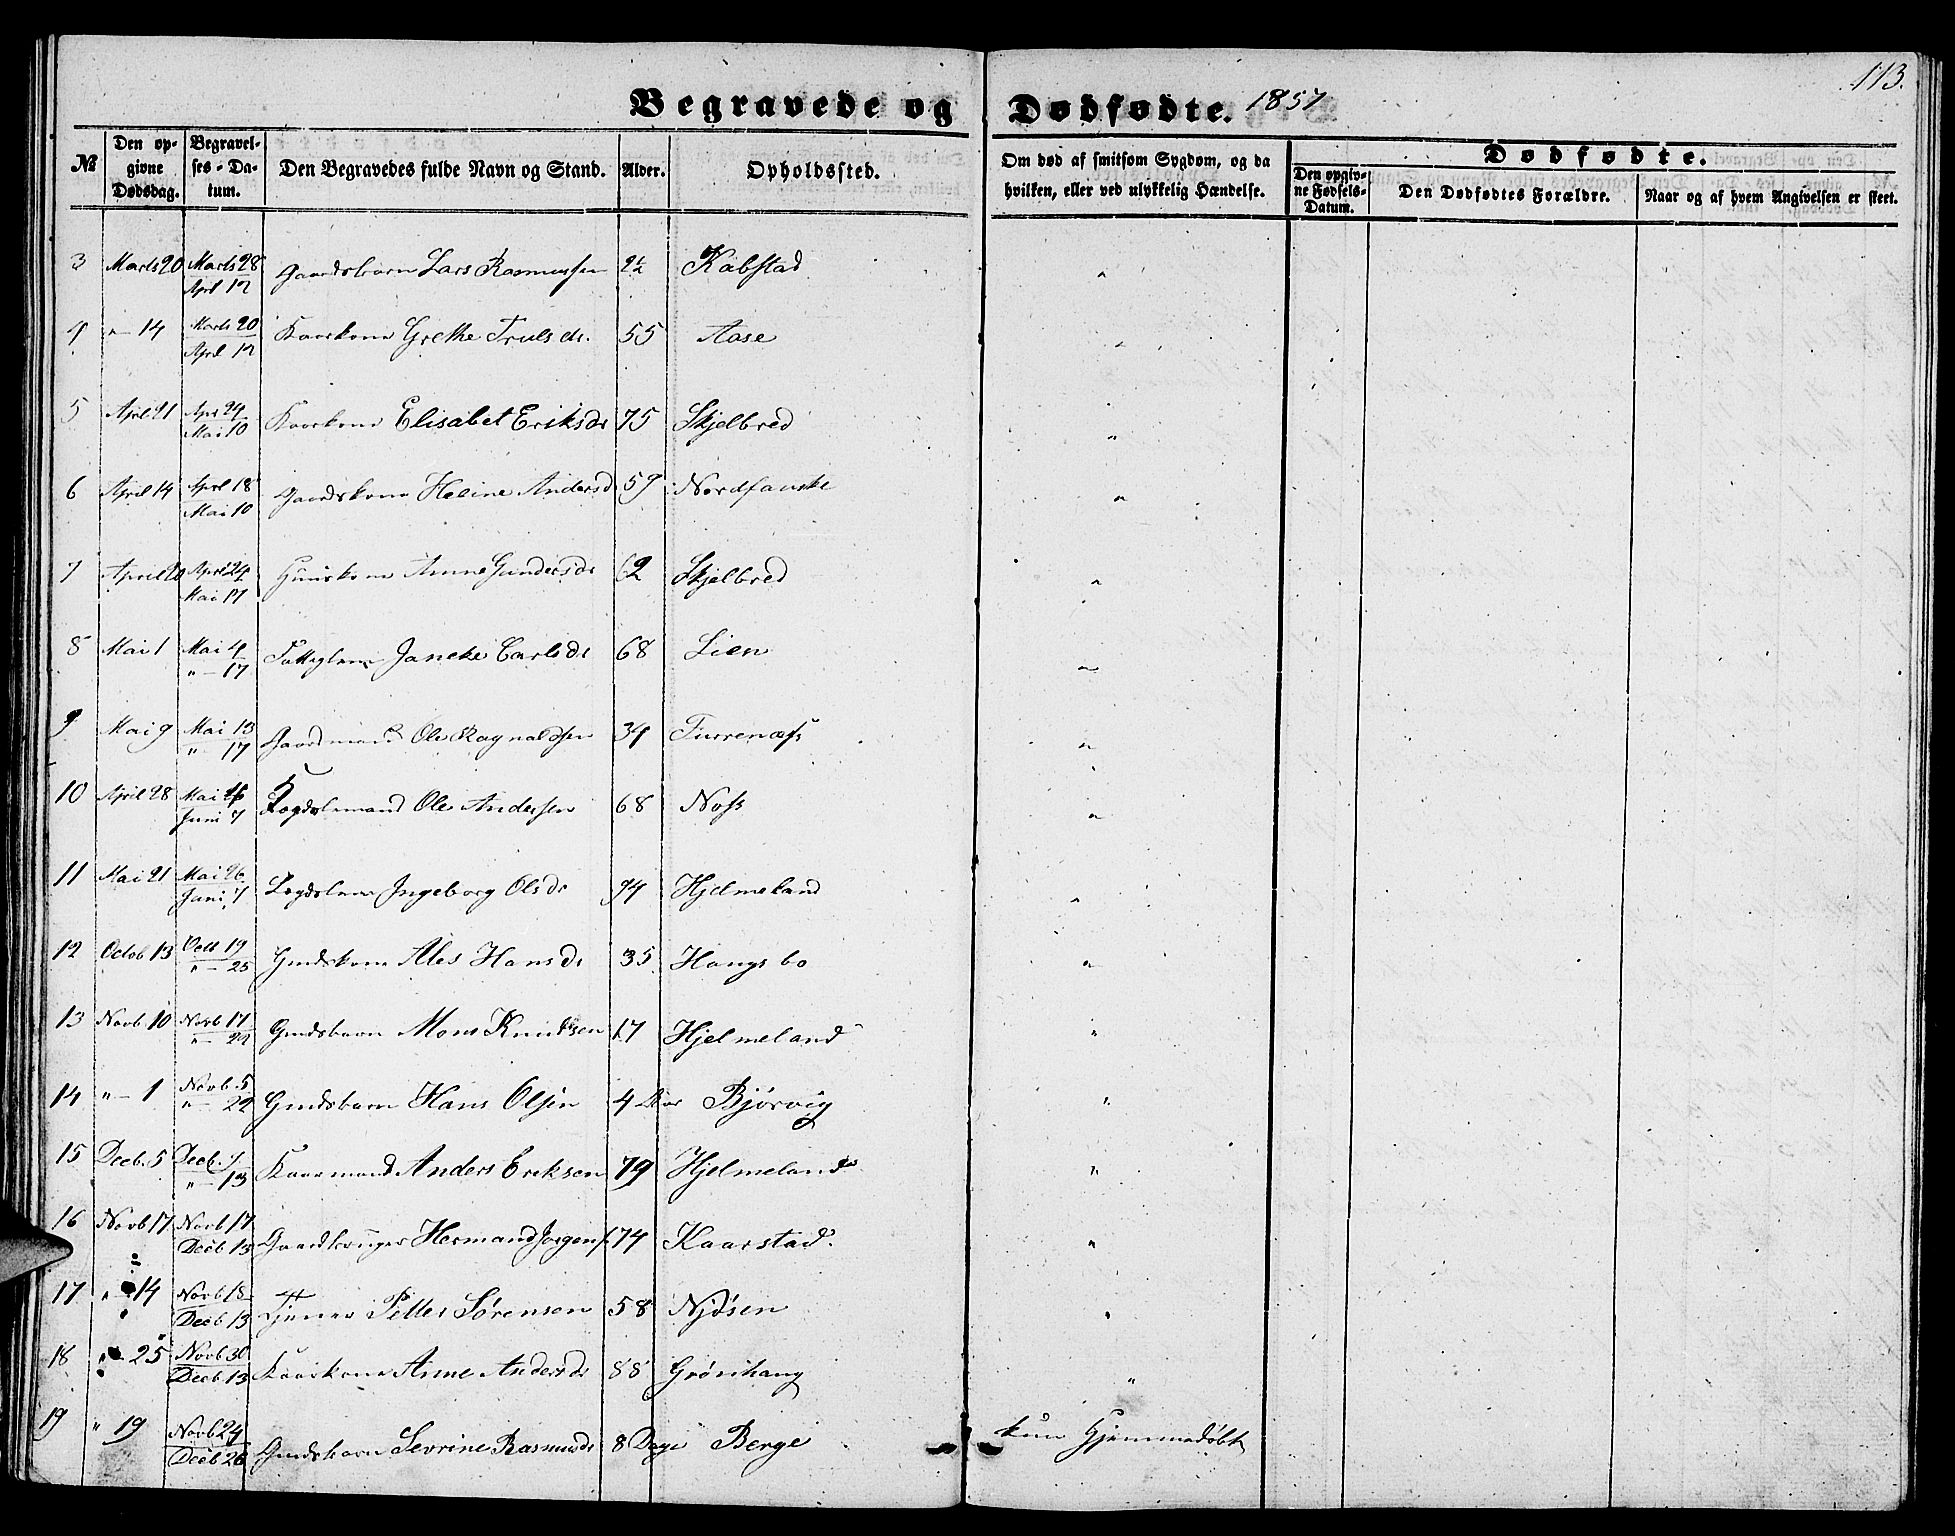 113.
Begravede og Dødfødte. 1857
№ Den opgivne Dødsdag. Begravelses-Datum. Den Begravedes fulde Navn og Stand. Alder. Opholdssted. Om død af smitsom Sygdom, og da hvilken, eller ved ulykkelig Hændelse. Dødfødte. Den opgivne Fødsels-Datum. Den Dødfødtes Forældre. Naar og af hvem Angivelsen er skeet.
3 Marts 20 Marts 28 April 12 Gaardsbarn Lars Rasmussen 2½ Kabstad "
4 "— 14 Marts 20 April 12 Kaarkone Grethe Trulsdr. 55 Aase "
5 April 21 Apr 24 Mai 10 Kaarkone Elisabet Eriksdr 75 Skjelbred "
6 April 14 April 18 Mai 10 Gaardskone Heline Andersd 59 Nordfauske "
7 April 20 April 24 Mai 17 Huuskone Anne Gundersdr 62 Skjelbred "
8 Mai 1 Mai 4 "— 17 Janeke Carlsdr 68 Lien "
9 Mai 9 Mai 13 "— 17 Gaardmand Ole Ragnaldsen 34 Furrenæss "
10 April 28 Mai Juni 7 Lægdslemand Ole Andersen 68 Noss "
11 Mai 21 Mai 26 Juni 7 Lægdslem Ingeborg Olsdr 94 Hjelmeland "
12 Octob 13 Octb 19 "— 25 Gmdskone Ales Hansdr 35 Haugsbo "
13 Novb 10 Novb 17 "— 22 Gmdsbarn Mons Knudsen 17 Hjelmeland "
14 "— 1 Novb. 5 "— 22 Gmdsbarn Hans Olsen 4 Bjørvig "
15 Decb. 5 Decb. 7 "— 13 Kaarmand Anders Eriksen 79 Hjelmeland "
16 Novb 17 Novb 17 Decb 13 Hermand Jørgens. 74 Kaarstad. "
17 "— 14 Novb 18 Decb 13 Tjener Petter Sørensen 58 Njøsen "
18 "— 25 Novb 30 Decb 13 Kaarkone Anne Andersdr 88 Grönhaug "
19 " 19 Novb 24 Decb 26 Gmdsbarn Sevrine Rasmusdr 8 Dage Berge kun Hjemmedøbt